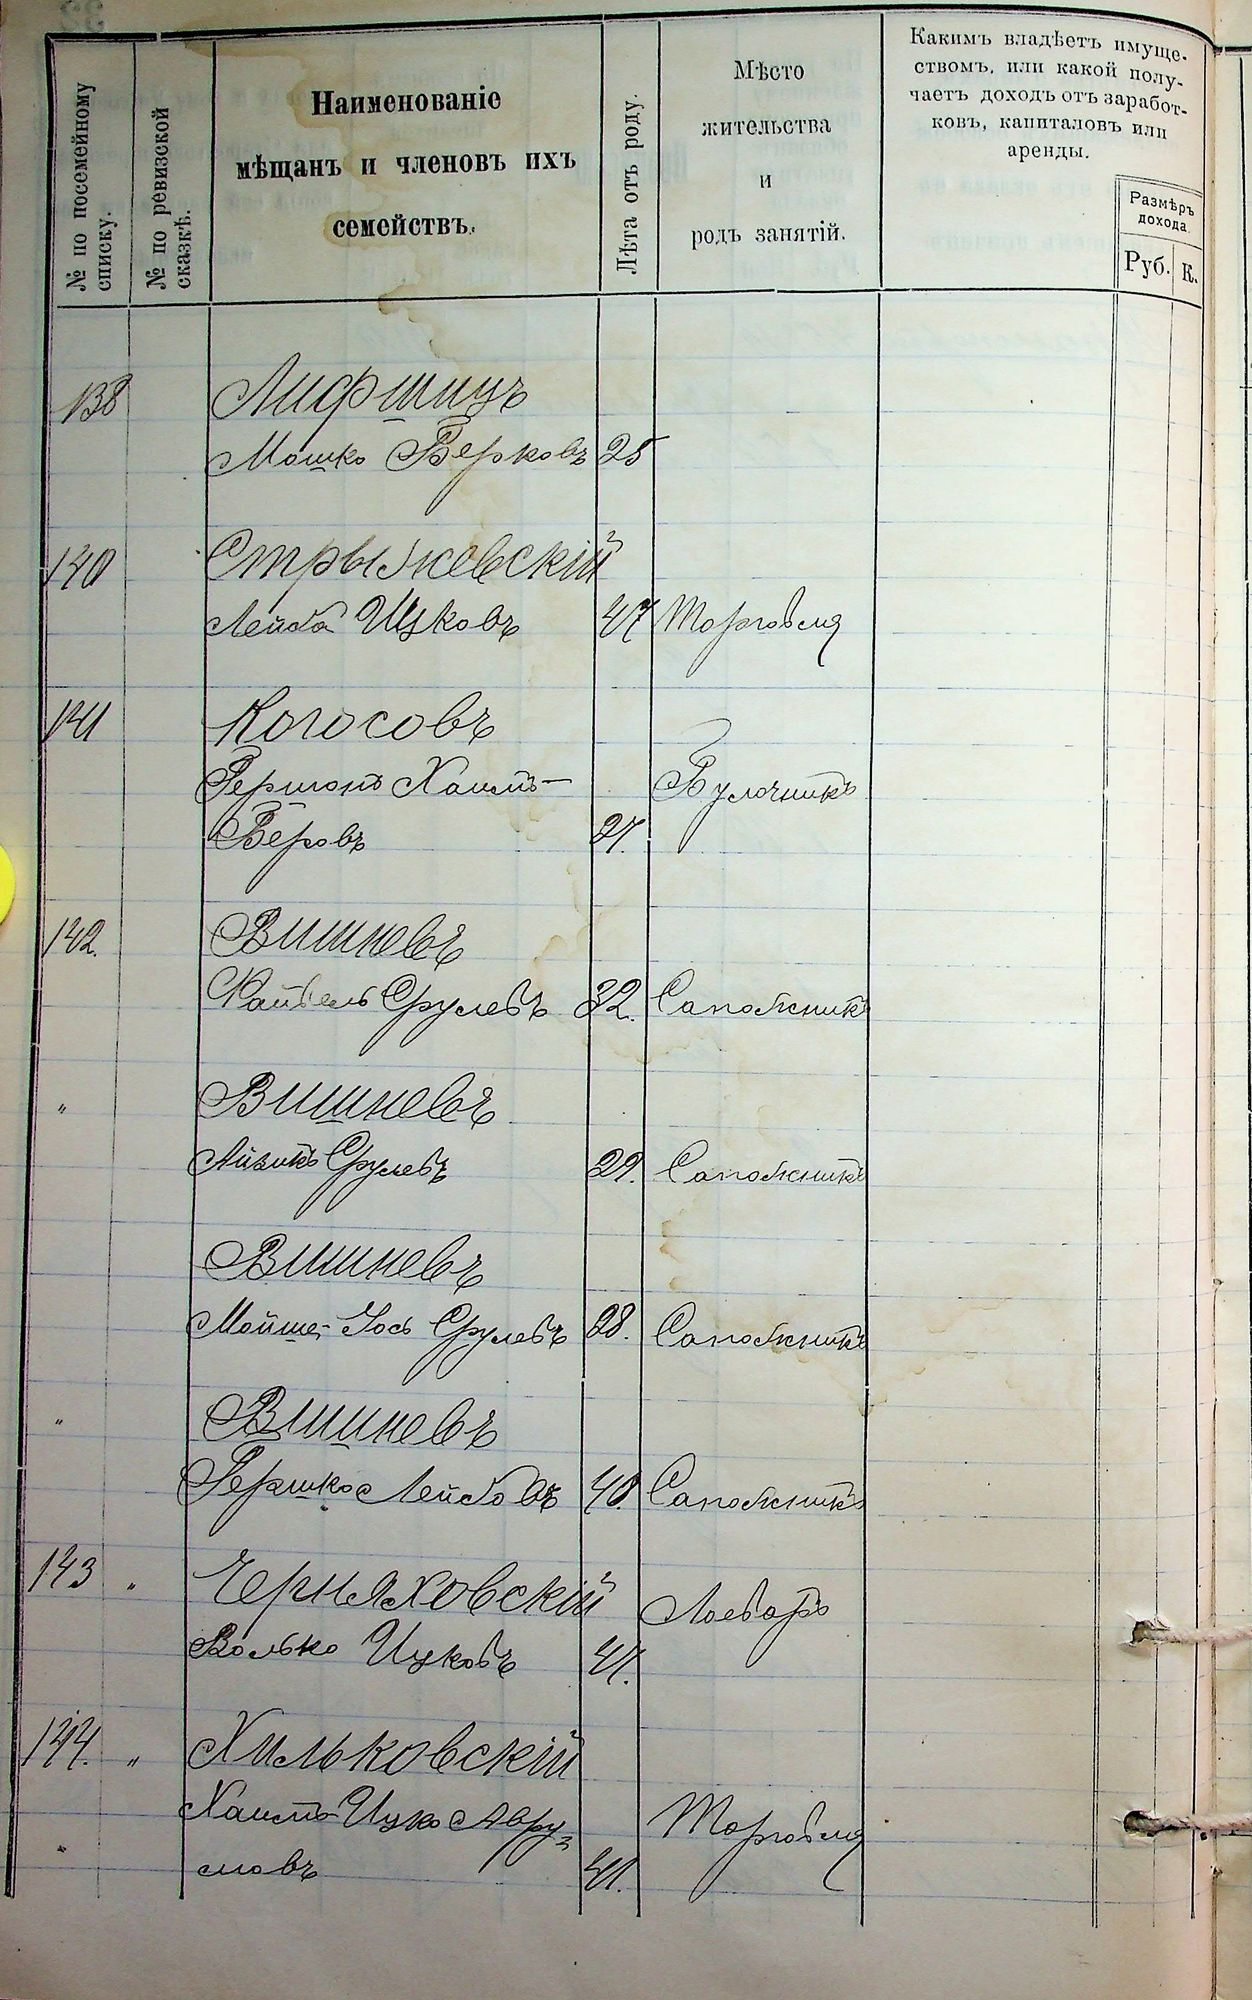 № по посемейному списку.
№ по ревизской сказкѣ.
Наименованіе
мѣщанъ и членовъ ихъ
семействъ.
Лѣта отъ роду.
Мѣсто
жительства
и
родъ занятій.
Какимъ владѣетъ имуще-
ствомъ, или какой полу-
чаетъ доходъ отъ заработ-
ковъ, капиталовъ или
аренды.
Размѣръ
дохода.
Руб. К.
138 Лифшицъ
Мошко Берковъ 25
140 Стрыжевскій
Лейба Ицковъ 47 Торговля
141 Когосовъ
Гершонъ Хаимъ- Булочникъ
Беровъ 27.
142. Вишневъ
Файвель Срулевъ 32. Сапожникъ
" Вишневъ
Айзикъ Срулевъ 29. Сапожникъ
Вишневъ
Мойше-Іось Срулевъ 28. Сапожникъ
" Вишневъ
Гершко Лейбовъ 40. Сапожникъ
143 " Черняховскій
Волько Ицковъ 47.
144. " Хильковскій
Хаимъ-Ицко Авру- Торговля
" мовъ 41.